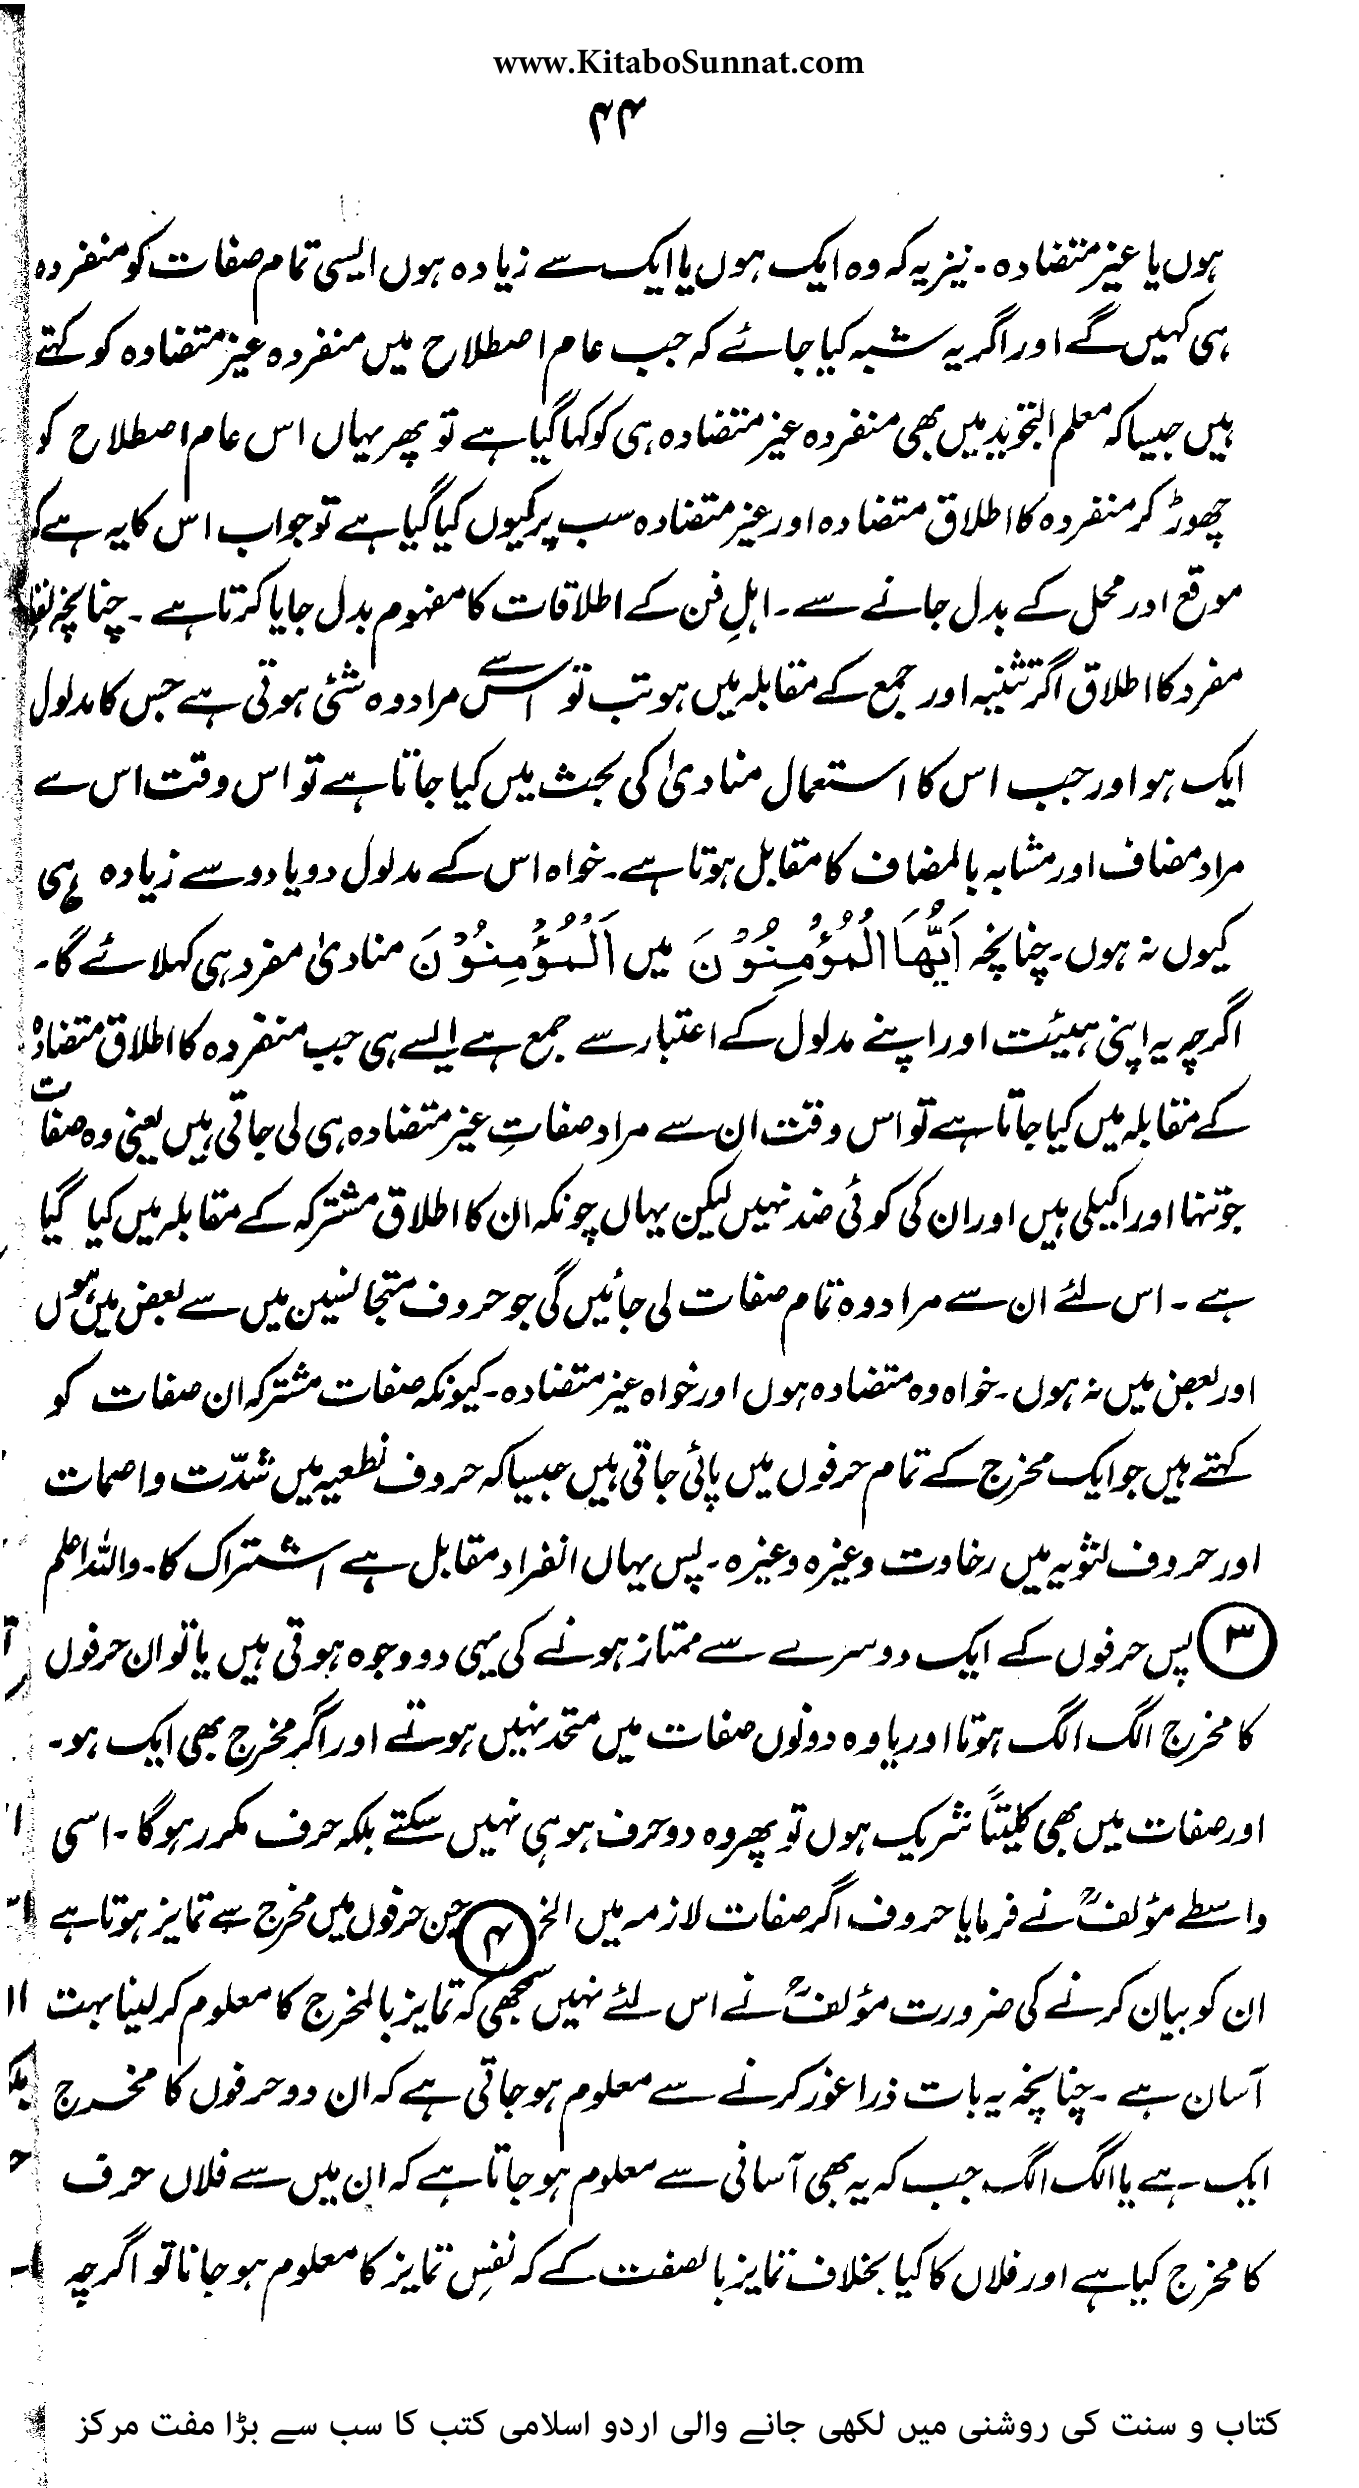 www.KitaboSunnat.com
۴۴
ہوں یا غیر متضادہ۔ نیز یہ کہ وہ ایک ہوں یا ایک سے زیادہ ہوں ایسی تمام صفات کو منفردہ
ہی کہیں گے اور اگر یہ شبہ کیا جائے کہ جب عام اصطلاح میں منفردہ غیر متضادہ کو کہتے
ہیں جیسا کہ معلم التجوید میں بھی منفردہ غیر متضادہ ہی کو کہا گیا ہے تو پھر یہاں اس عام اصطلاح کو
چھوڑ کر منفردہ کا اطلاق متضادہ اور غیر متضادہ سب پر کیوں کیا گیا ہے تو جواب اس کا یہ ہے کہ
موقع اور محل کے بدل جانے سے۔ اہلِ فن کے اطلاقات کا مفہوم بدل جایا کرتا ہے۔ چنانچہ لفظ
مفرد کا اطلاق اگر تثنیہ اور جمع کے مقابلہ میں ہو تب تو اس سے مراد وہ شئی ہوتی ہے جس کا مدلول
ایک ہو اور جب اس کا استعمال منادیٰ کی بحث میں کیا جاتا ہے تو اس وقت اس سے
مراد مضاف اور مشابہ بالمضاف کا مقابل ہوتا ہے۔ خواہ اس کے مدلول دو یا دو سے زیادہ ہی
کیوں نہ ہوں۔ چنانچہ اَیُّھَا الْمُؤْمِنُوْنَ میں اَلْمُؤْمِنُوْنَ منادیٰ مفرد ہی کہلائے گا۔
اگرچہ یہ اپنی ہیئت اور اپنے مدلول کے اعتبار سے جمع ہے ایسے ہی جب منفردہ کا اطلاق متضادہ
کے مقابلہ میں کیا جاتا ہے تو اس وقت ان سے مراد صفاتِ غیر متضادہ ہی لی جاتی ہیں یعنی وہ صفات
جو تنہا اور اکیلی ہیں اور ان کی کوئی ضد نہیں لیکن یہاں چونکہ ان کا اطلاق مشترکہ کے مقابلہ میں کیا گیا
ہے۔ اس لئے ان سے مراد وہ تمام صفات لی جائیں گی جو حروف متجانسین میں سے بعض میں ہوں
اور بعض میں نہ ہوں۔ خواہ وہ متضادہ ہوں اور خواہ غیر متضادہ۔ کیونکہ صفات مشترکہ ان صفات کو
کہتے ہیں جو ایک مخرج کے تمام حرفوں میں پائی جاتی ہیں جیسا کہ حروف نطعیہ میں شدّت و اصمات
اور حروف لثویہ میں رخاوت وغیرہ وغیرہ۔ پس یہاں انفراد مقابل ہے اشتراک کا۔ واللہ اعلم
۳ پس حرفوں کے ایک دوسرے سے ممتاز ہونے کی یہی دو وجوہ ہوتی ہیں یا تو ان حرفوں
کا مخرج الگ الگ ہوتا اور یا وہ دونوں صفات میں متحد نہیں ہوتے اور اگر مخرج بھی ایک ہو۔
اور صفات میں بھی کلیتاً شریک ہوں تو پھر وہ دو حرف ہو ہی نہیں سکتے بلکہ حرف مکرر ہو گا۔ اسی
واسطے مؤلفؒ نے فرمایا حروف اگر صفات لازمہ میں الخ ۴ جن حرفوں میں مخرج سے تمایز ہوتا ہے
ان کو بیان کرنے کی ضرورت مؤلفؒ نے اس لئے نہیں سمجھی کہ تمایز بالمخرج کا معلوم کر لینا بہت
آسان ہے۔ چنانچہ یہ بات ذرا غور کرنے سے معلوم ہو جاتی ہے کہ ان دو حرفوں کا مخرج
ایک ہے یا الگ الگ جب کہ یہ بھی آسانی سے معلوم ہو جاتا ہے کہ ان میں سے فلاں حرف
کا مخرج کیا ہے اور فلاں کا کیا بخلاف تمایز بالصفت کے کہ نفسِ تمایز کا معلوم ہو جانا تو اگرچہ
کتاب و سنت کی روشنی میں لکھی جانے والی اردو اسلامی کتب کا سب سے بڑا مفت مرکز